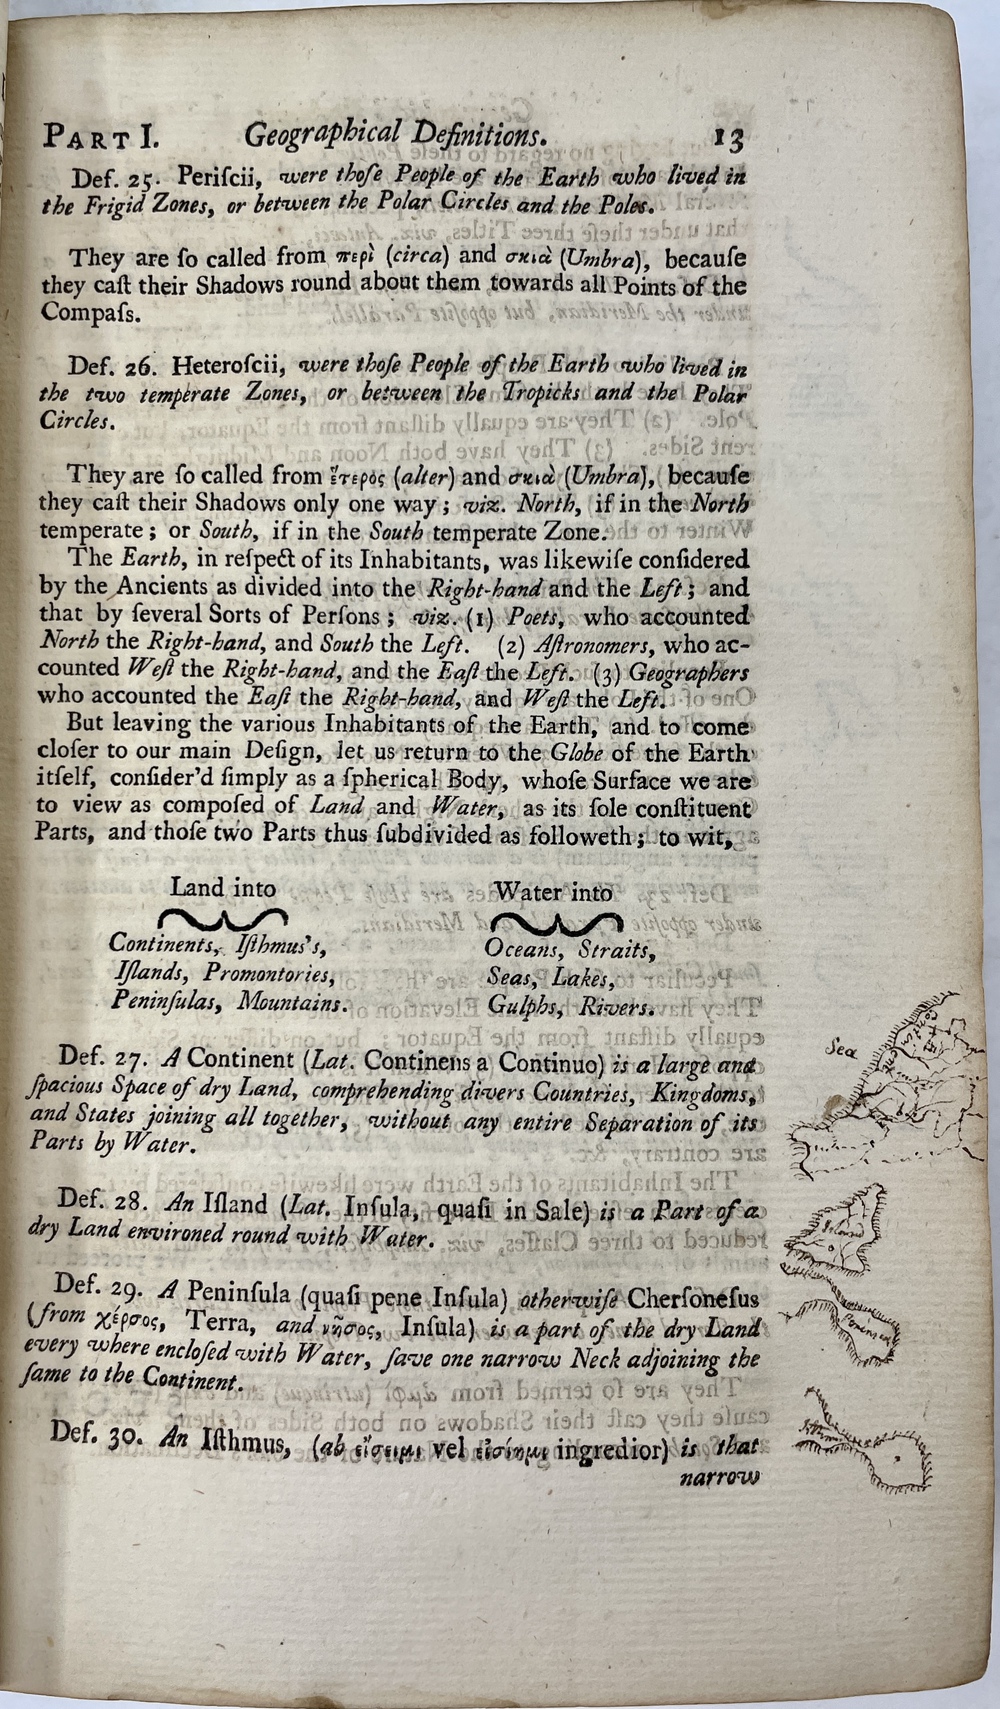 PART I. Geographical Definitions. 13
Def. 25. Periſcii, were thoſe People of the Earth who lived in
the Frigid Zones, or between the Polar Circles and the Poles.
They are ſo called from περὶ (circa) and σκιὰ (Umbra), becauſe
they caſt their Shadows round about them towards all Points of the
Compaſs.
Def. 26. Heteroſcii, were thoſe People of the Earth who lived in
the two temperate Zones, or between the Tropicks and the Polar
Circles.
They are ſo called from ἕτερος (alter) and σκιὰ (Umbra), becauſe
they caſt their Shadows only one way; viz. North, if in the North
temperate; or South, if in the South temperate Zone.
The Earth, in reſpect of its Inhabitants, was likewiſe conſidered
by the Ancients as divided into the Right-hand and the Left; and
that by ſeveral Sorts of Perſons; viz. (1) Poets, who accounted
North the Right-hand, and South the Left. (2) Aſtronomers, who ac-
counted Weſt the Right-hand, and the Eaſt the Left. (3) Geographers
who accounted the Eaſt the Right-hand, and Weſt the Left.
But leaving the various Inhabitants of the Earth, and to come
cloſer to our main Deſign, let us return to the Globe of the Earth
itſelf, conſider'd ſimply as a ſpherical Body, whoſe Surface we are
to view as compoſed of Land and Water, as its ſole conſtituent
Parts, and thoſe two Parts thus ſubdivided as followeth; to wit,
Land into Water into
Continents, Iſthmus's, Oceans, Straits,
Iſlands, Promontories, Seas, Lakes,
Peninſulas, Mountains. Gulphs, Rivers.
Def. 27. A Continent (Lat. Continens a Continuo) is a large and
ſpacious Space of dry Land, comprehending divers Countries, Kingdoms,
and States joining all together, without any entire Separation of its
Parts by Water.
Sea
Def. 28. An Iſland (Lat. Inſula, quaſi in Sale) is a Part of a
dry Land environed round with Water.
Island
Def. 29. A Peninſula (quaſi pene Inſula) otherwiſe Cherſoneſus
(from χέρσος, Terra, and νῆσος, Inſula) is a part of the dry Land
every where encloſed with Water, ſave one narrow Neck adjoining the
ſame to the Continent.
Def. 30. An Iſthmus, (ab εἴσειμι vel εἰσίημι ingredior) is that
narrow